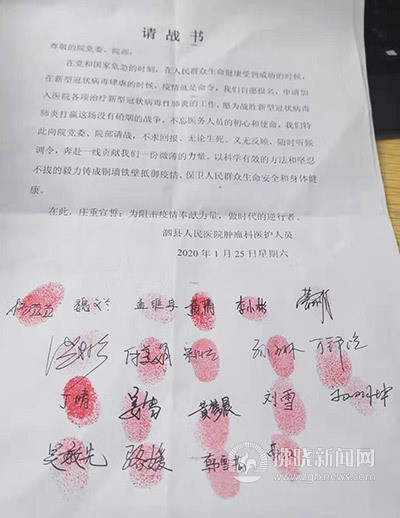 请 战 书
尊敬的院党委、院部：
在党和国家危急的时刻，在人民群众生命健康受到威胁的时候，
在新型冠状病毒肆虐的时候，疫情就是命令，我们自愿报名，申请加
入医院各项治疗新型冠状病毒性肺炎的工作，愿为战胜新型冠状病毒
肺炎打赢这场没有硝烟的战争，不忘医务人员的初心和使命，我们特
此向院党委、院部请战，不求回报、无论生死、义无反顾，随时听候
调令，奔赴一线贡献我们一份微薄的力量，以科学有效的方法和坚忍
不拔的毅力铸成铜墙铁壁抵御疫情，保卫人民群众生命安全和身体健
康。
在此，庄重宣誓：为阻击疫情奉献力量，做时代的逆行者。
泗县人民医院肿瘤科医护人员
2020 年 1 月 25 日星期六
孟非丹 李小彬
丁晴 姜雪 黄梦晨 刘雪
吴敏先 骆媛
拂晓新闻网
www.zgfxnews.com